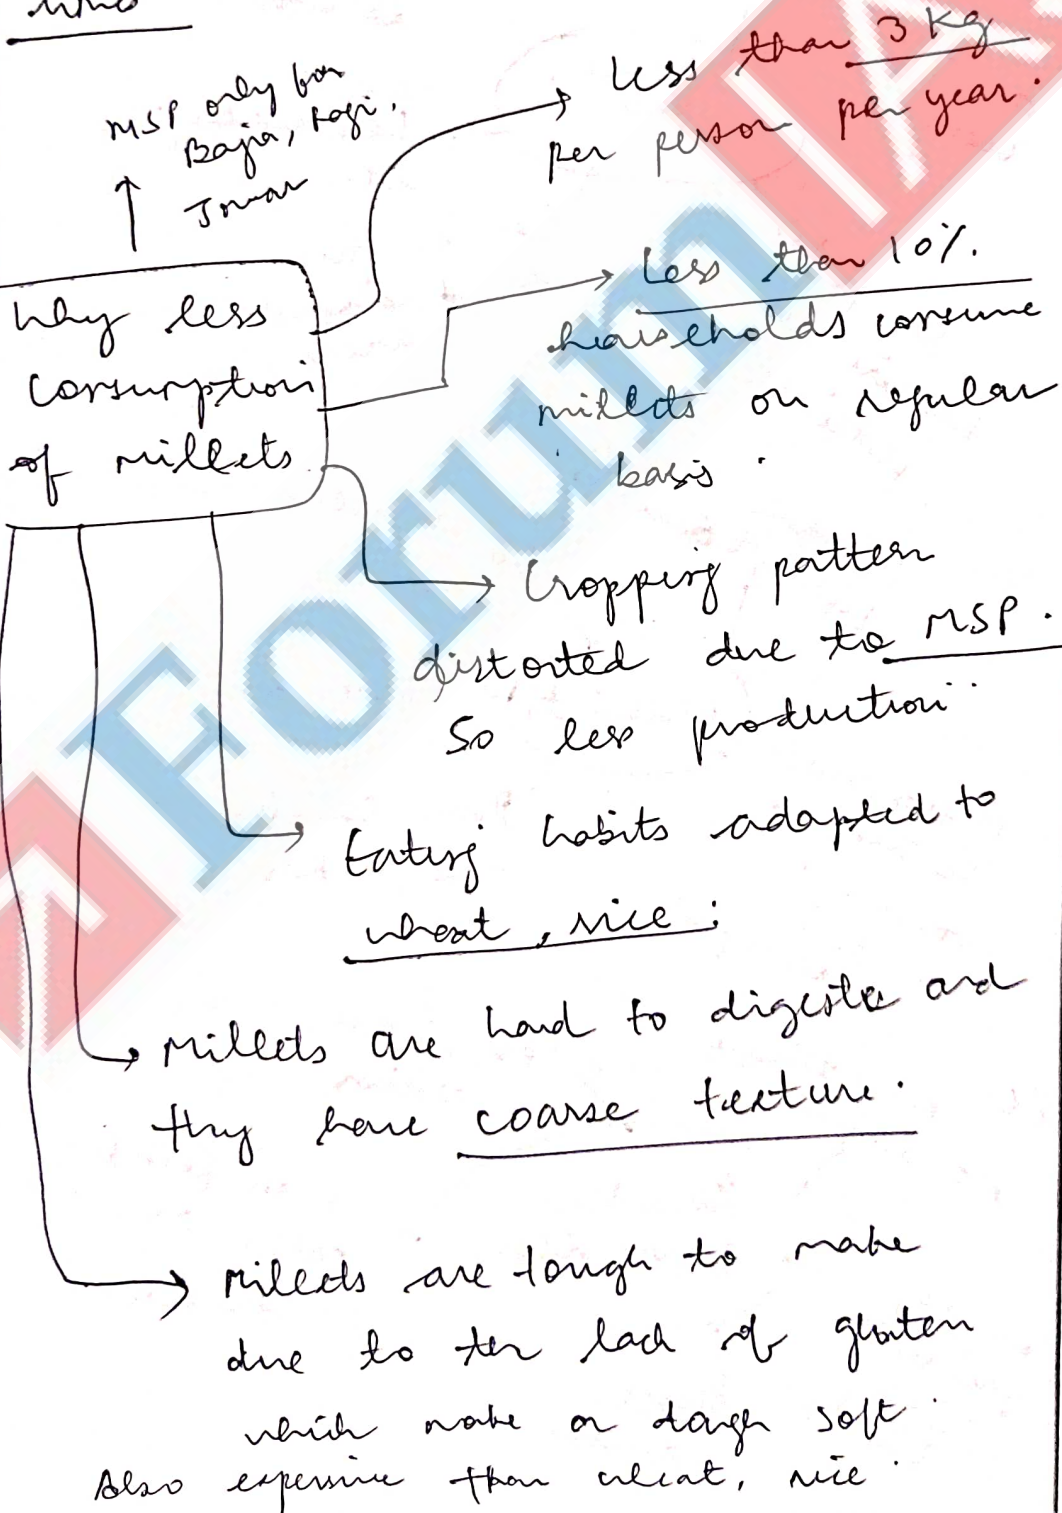 MSP only for
Bajra, Ragi,
Jowar
less than 3 Kg
per person per year.
Why less
consumption
of millets
Less than 10%
households consume
millets on regular
basis.
Cropping pattern
distorted due to MSP.
So less production
Eating habits adapted to
wheat, rice.
Millets are hard to digest and
they have coarse texture.
Millets are tough to make
due to the lack of gluten
which make a dough soft.
Also expensive than wheat, rice.
ForumIA